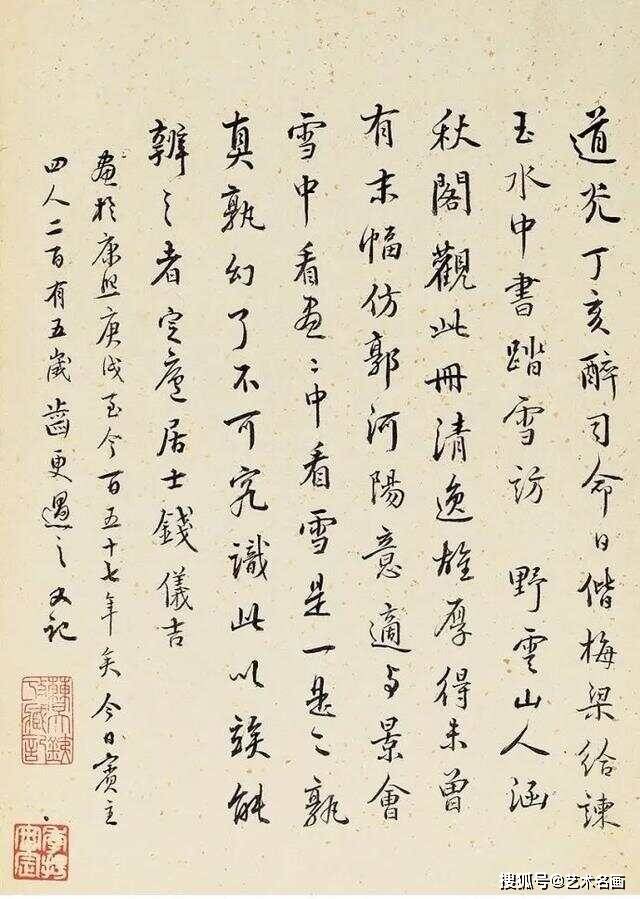 道光丁亥醉司命日偕梅梁給諫
玉水中書踏雪訪 野雲山人涵
秋閣觀此冊清逸雄厚得未曾
有末幅仿郭河陽意適與景會
雪中看畫〻中看雪是一是二孰
真孰幻了不可究識此以俟能
辨之者定廬居士錢儀吉
畫於康熙庚戌至今百五十七年矣今日賓主
四人二百有五歲齒更過之又記
搜狐号@艺术名画